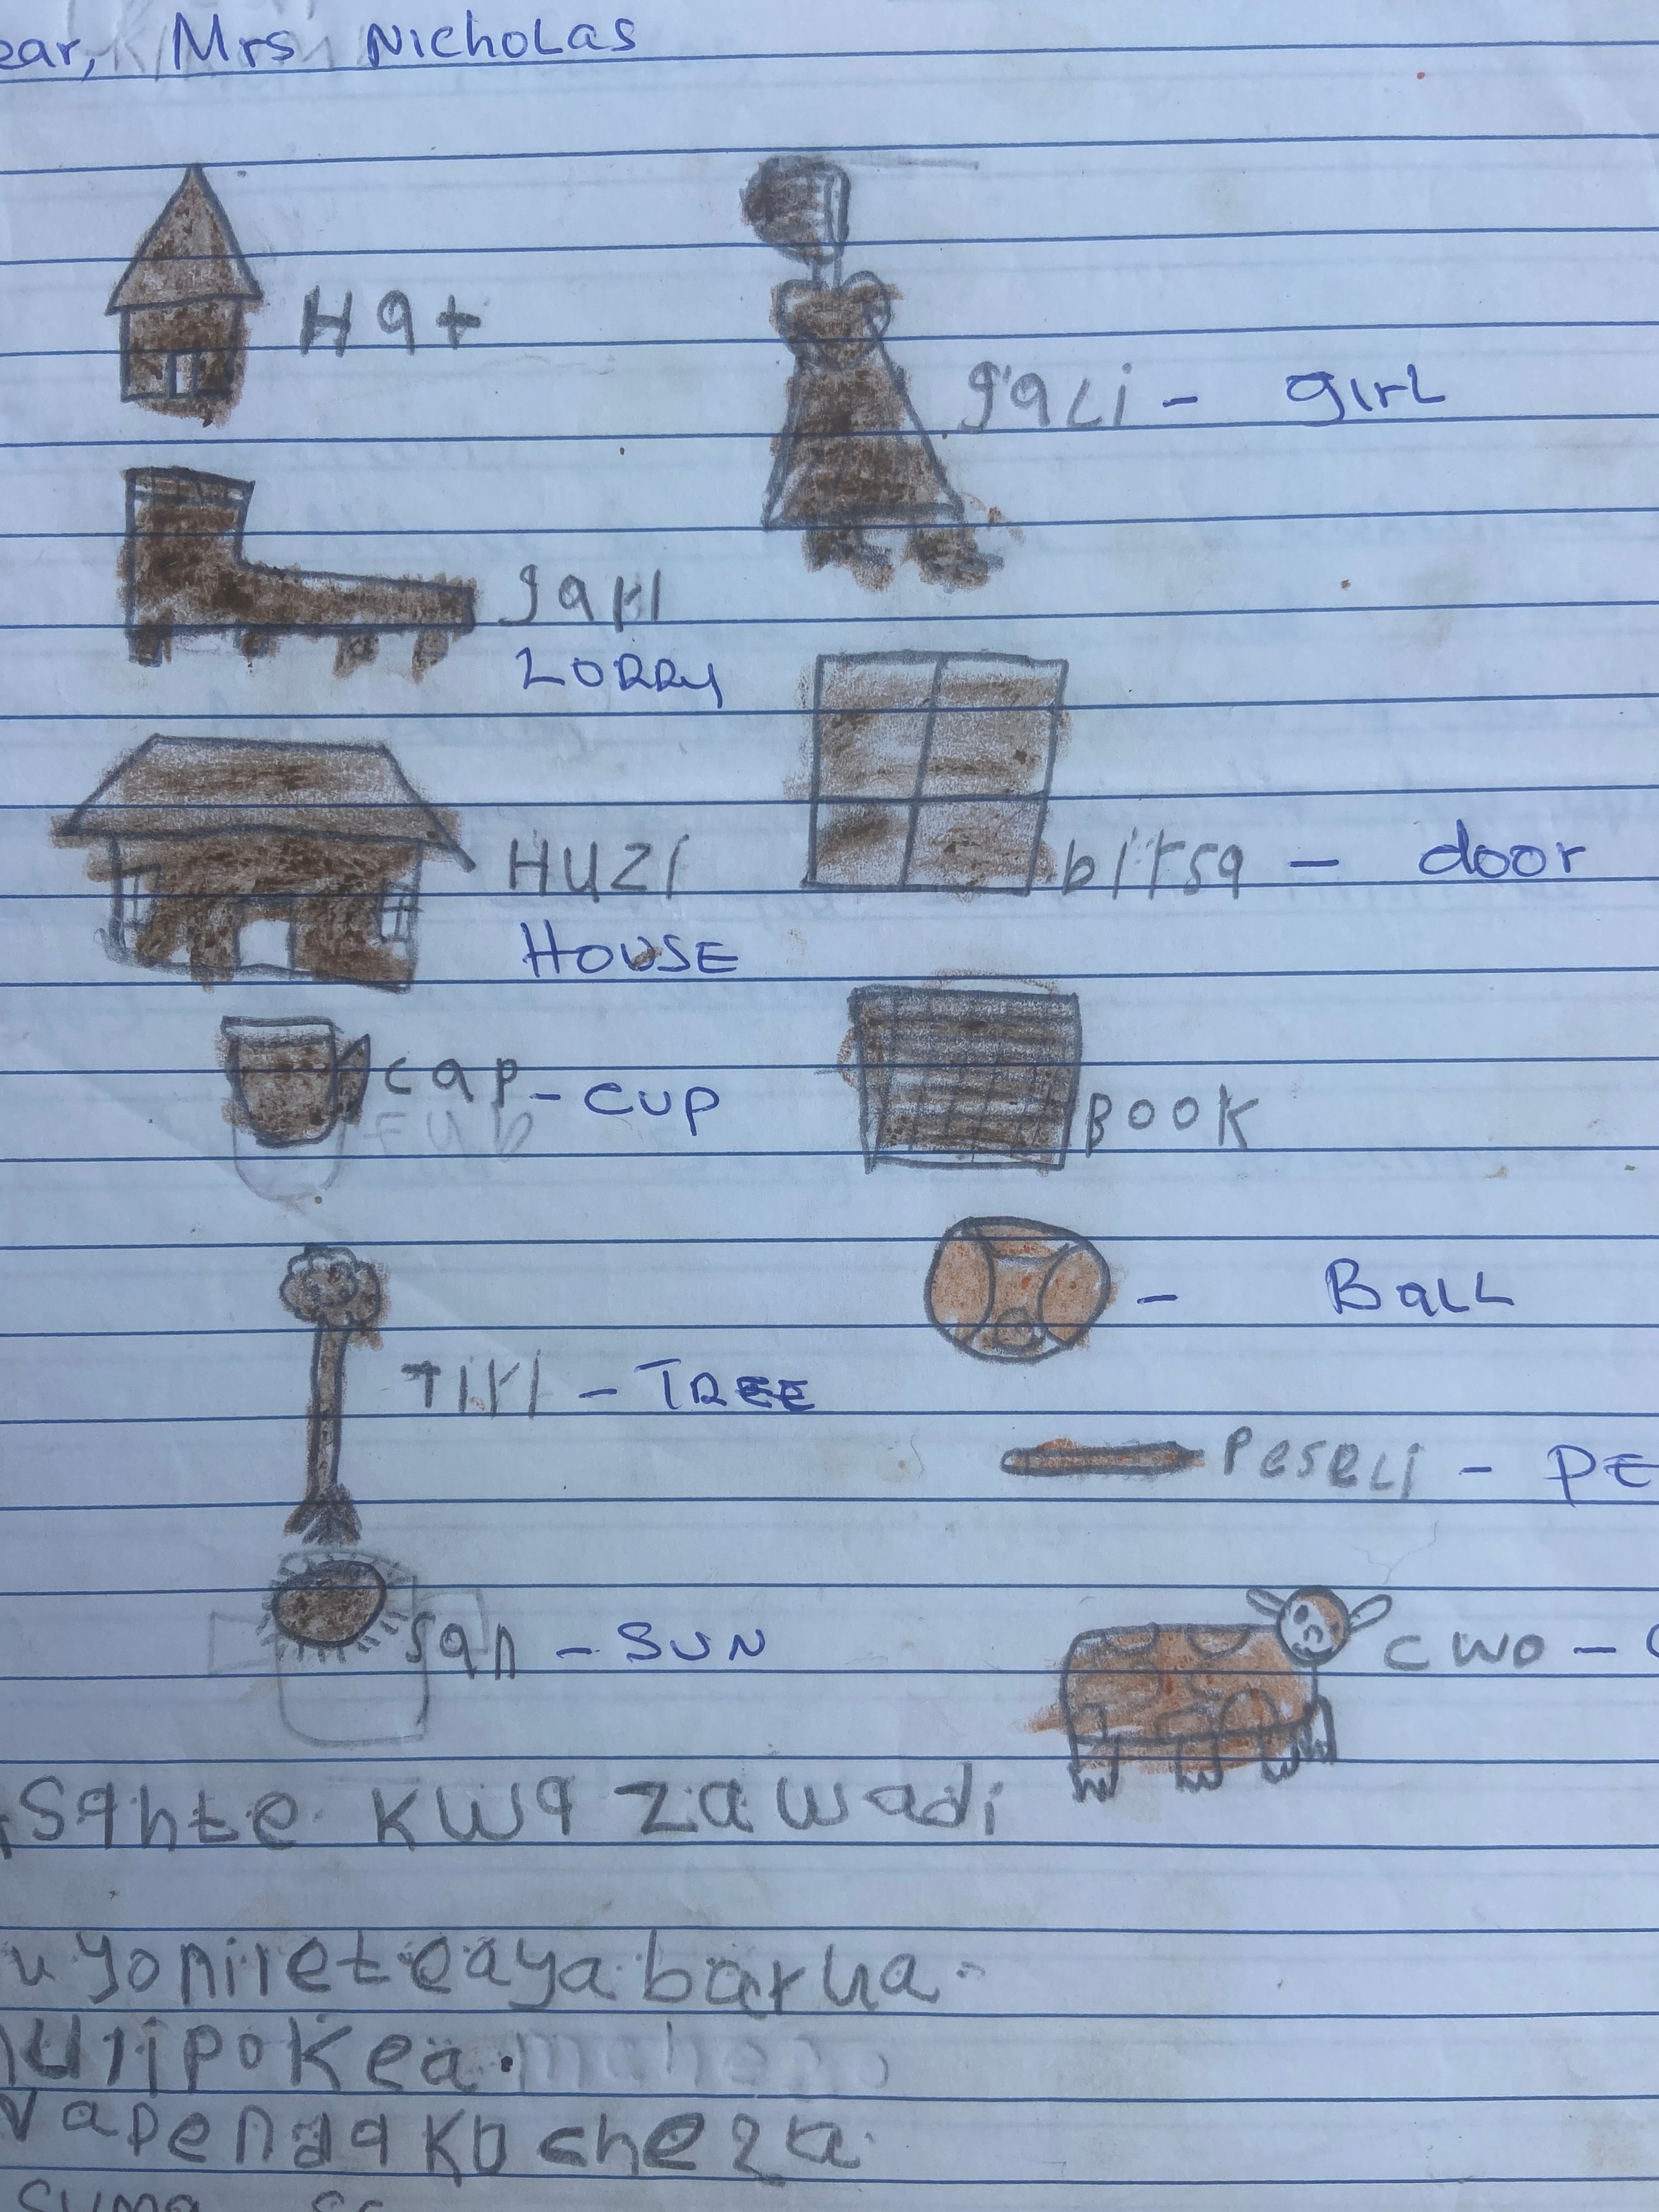 ear, Mrs Nicholas
Hat
gali - girl
gari
LORRY
HUZI
HOUSE
birsa - door
cap - cup
BOOK
- Ball
TIRI - TREE
Peseli - PE
san - SUN
cwo - C
sante kwa zawadi
uyonileteaya barua
ulipokea.
wapenda kucheza
suma